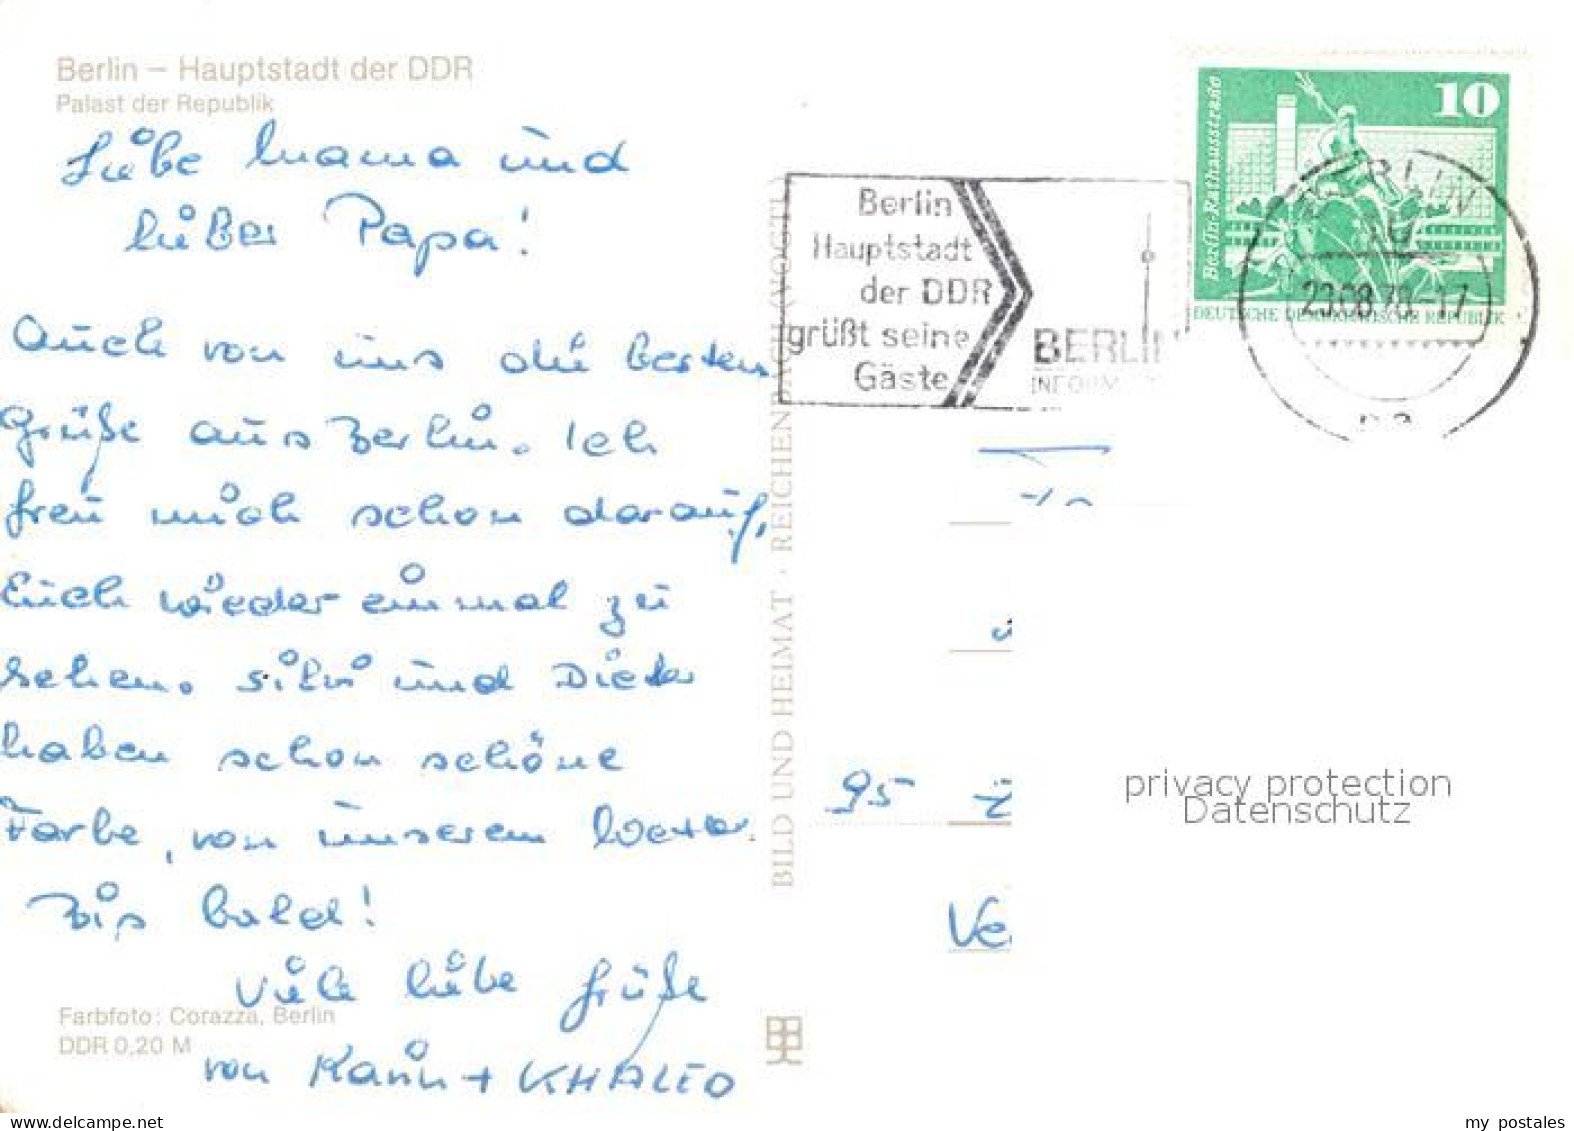 Berlin – Hauptstadt der DDR
Palast der Republik
Liebe Mama und
lieber Papa!
Auch von uns die besten
Grüße aus Berlin. Ich
freu mich schon darauf,
Euch wieder einmal zu
sehen. Silvi und Dieter
haben schon schöne
Farbe, von unserem Wetter
Bis bald!
Viele liebe Grüße
von Karin + KHALED
Farbfoto: Corazza, Berlin
DDR 0,20 M
BILD UND HEIMAT · REICHENBACH (VOGTL
Berlin
Hauptstadt
der DDR
grüßt seine
Gäste
BERLIN
INFORMAT
10
Berlin-Rathausstraße
DEUTSCHE DEMOKRATISCHE REPUBLIK
BERLIN
10
23.08.78-17
95
Ve
privacy protection
Datenschutz
my postales
www.delcampe.net